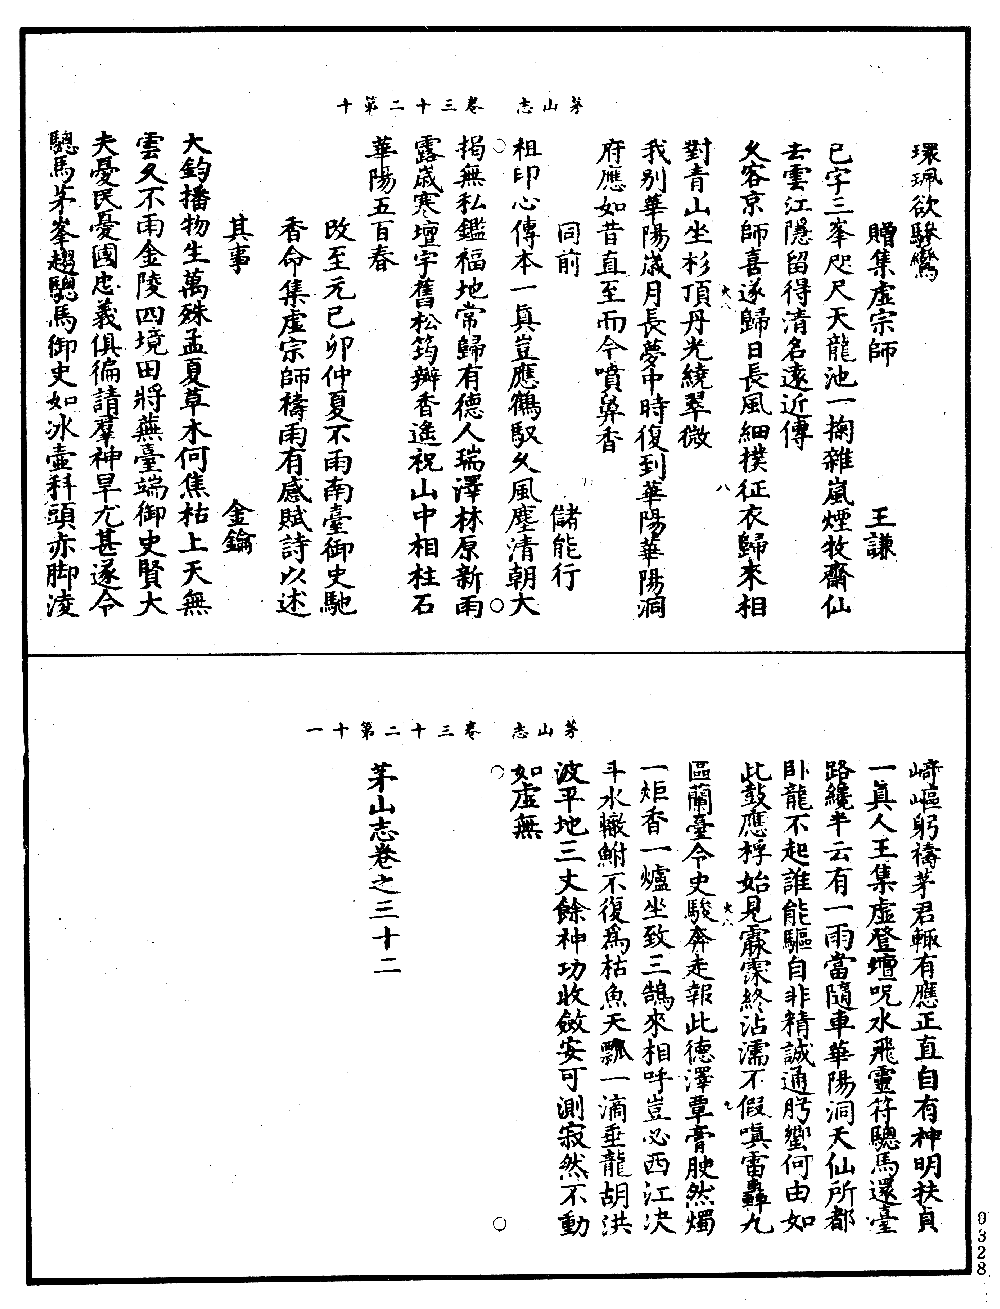 茅山志　卷三十二第十
環珮欲驂鸞
贈集虛宗師　王謙
已字三峯咫尺天龍池一掬雜嵐煙牧齋仙
去雲江隱留得清名遠近傳
久客京師喜遂歸日長風細撲征衣歸來相
對青山坐杉頂丹光繞翠微
我別華陽歲月長夢中時復到華陽華陽洞
府應如昔直至而今噴鼻香
同前　儲能行
祖印心傳本一真豈應鶴馭久風塵清朝大
揭無私鑑福地常歸有德人瑞澤林原新雨
露歲寒壇宇舊松筠瓣香遙祝山中相柱石
華陽五百春
改至元已卯仲夏不雨南臺御史馳
香命集虛宗師禱雨有感賦詩以述
其事　金鑰
大鈞播物生萬殊孟夏草木何焦枯上天無
雲久不雨金陵四境田將蕪臺端御史賢大
夫憂民憂國忠義俱徧請羣神旱尤甚遂令
驄馬茅峯趨驄馬御史如冰壺科頭赤脚淩
茅山志　卷三十二第十一
﨑嶇躬禱茅君輙有應正直自有神明扶貞
一真人王集虛登壇呪水飛靈符驄馬還臺
路纔半云有一雨當隨車華陽洞天仙所都
卧龍不起誰能驅自非精誠通肹蠁何由如
此鼓應桴始見霡霂終沾濡不假嗔雷轟九
區蘭臺令史駿奔走報此德澤覃膏腴然燭
一炬香一爐坐致三鵠來相呼豈必西江決
斗水轍鮒不復為枯魚天瓢一滴垂龍胡洪
波平地三丈餘神功收斂安可測寂然不動
如虛無
茅山志卷之三十二
0328